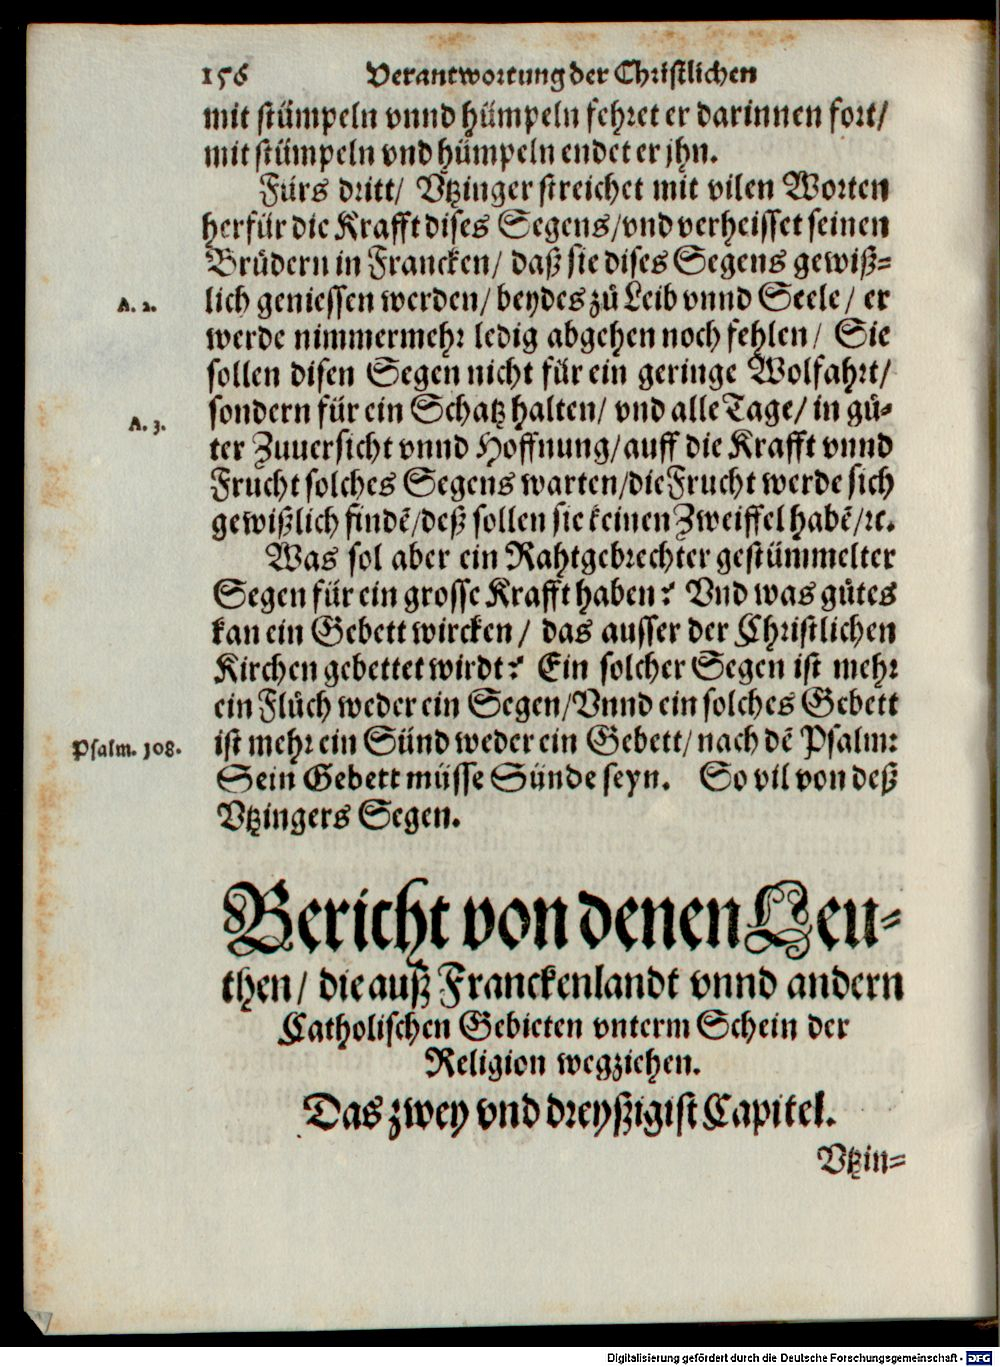 156 Verantwortung der Christlichen
mit stümpeln vnnd hümpeln fehret er darinnen fort/
mit stümpeln vnd hümpeln endet er jhn.
Fürs dritt/ Vtzinger streichet mit vilen Worten
herfür die Krafft dises Segens/vnd verheisset seinen
Brůdern in Francken/ daß sie dises Segens gewiß-
A. 2. lich geniessen werden/ beydes zů Leib vnnd Seele/ er
werde nimmermehr ledig abgehen noch fehlen/ Sie
sollen disen Segen nicht für ein geringe Wolfahrt/
A. 3. sondern für ein Schatz halten/ vnd alle Tage/ in gů-
ter Zuuersicht vnnd Hoffnung/auff die Krafft vnnd
Frucht solches Segens warten/die Frucht werde sich
gewißlich findē/deß sollen sie keinen Zweiffel habē/ꝛc.
Was sol aber ein Rahtgebrechter gestümmelter
Segen für ein grosse Krafft haben? Vnd was gůtes
kan ein Gebett wircken/ das ausser der Christlichen
Kirchen gebettet wirdt? Ein solcher Segen ist mehr
ein Flůch weder ein Segen/Vnnd ein solches Gebett
Psalm. 108. ist mehr ein Sünd weder ein Gebett/nach dē Psalm:
Sein Gebett müsse Sünde seyn. So vil von deß
Vtzingers Segen.
Bericht von denen Leu-
then/ die auß Franckenlandt vnnd andern
Catholischen Gebieten vnterm Schein der
Religion wegziehen.
Das zwey vnd dreyßigist Capitel.
Vtzin-
Digitalisierung gefördert durch die Deutsche Forschungsgemeinschaft - DFG